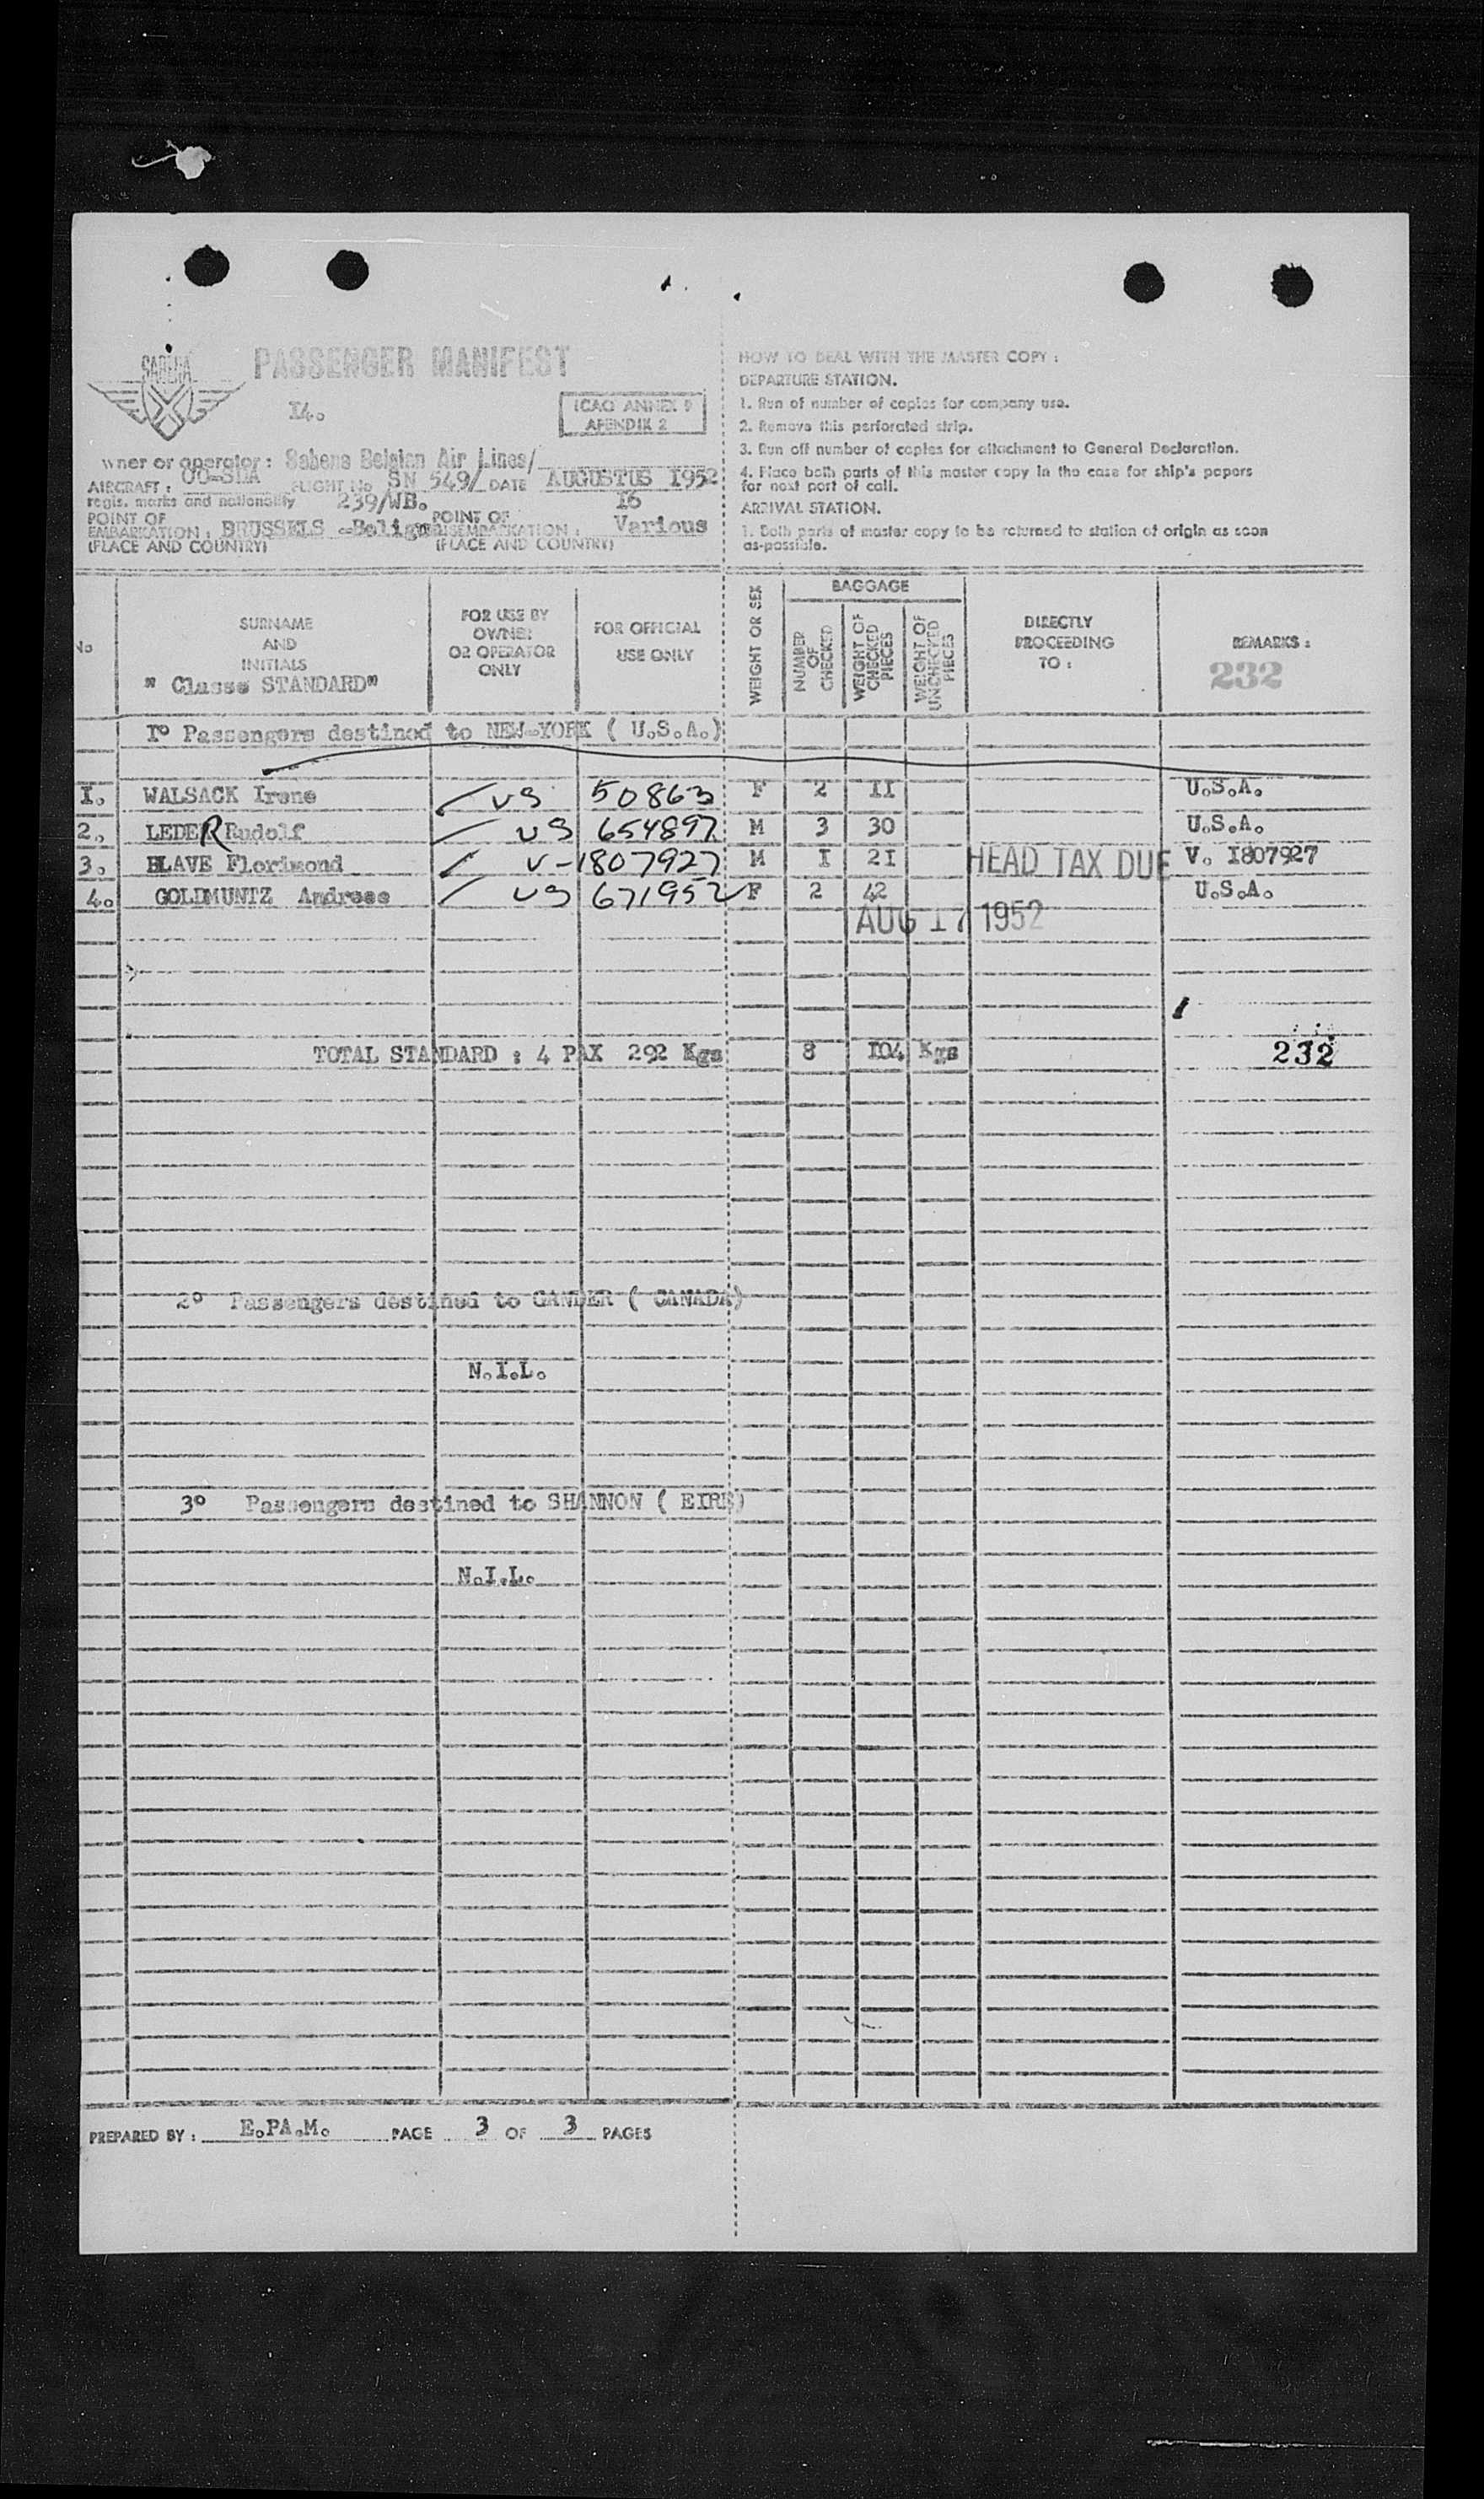 SABENA
PASSENGER MANIFEST
I4.
ICAO ANNEX 9
APENDIX 2
wner or operator : Sabena Belgian Air Lines/
AIRCRAFT : FLIGHT No SN 549/ DATE AUGUSTUS I952
regis. marks and nationality 239/WB. I6
POINT OF EMBARKATION : BRUSSELS -Beligm POINT OF DISEMBARKATION : Various
(PLACE AND COUNTRY) (PLACE AND COUNTRY)
HOW TO DEAL WITH THE MASTER COPY :
DEPARTURE STATION.
1. Run of number of copies for company use.
2. Remove this perforated strip.
3. Run off number of copies for attachment to General Declaration.
4. Place both parts of this master copy in the case for ship's papers
for next port of call.
ARRIVAL STATION.
1. Both parts of master copy to be returned to station of origin as soon
as possible.
No
SURNAME
AND
INITIALS
" Classe STANDARD"
FOR USE BY
OWNER
OR OPERATOR
ONLY
FOR OFFICIAL
USE ONLY
WEIGHT OR SEX
BAGGAGE
NUMBER OF CHECKED
WEIGHT OF CHECKED PIECES
WEIGHT OF UNCHECKED PIECES
DIRECTLY
PROCEEDING
TO :
REMARKS :
232
I° Passengers destined to NEW-YORK ( U.S.A.)
I. WALSACK Irene US 50863 F 2 II U.S.A.
2. LEDER Rudolf US 654897 M 3 30 U.S.A.
3. BLAVE Florimond V-1807927 M I 2I HEAD TAX DUE V. I807927
4. GOLDMUNTZ Andree US 671952 F 2 42 U.S.A.
AUG 17 1952
TOTAL STANDARD : 4 PAX 292 Kgs 8 I04 Kgs 232
2° Passengers destined to GANDER ( CANADA)
N.I.L.
3° Passengers destined to SHANNON ( EIRE)
N.I.L.
PREPARED BY : E.PA.M. PAGE 3 OF 3 PAGES